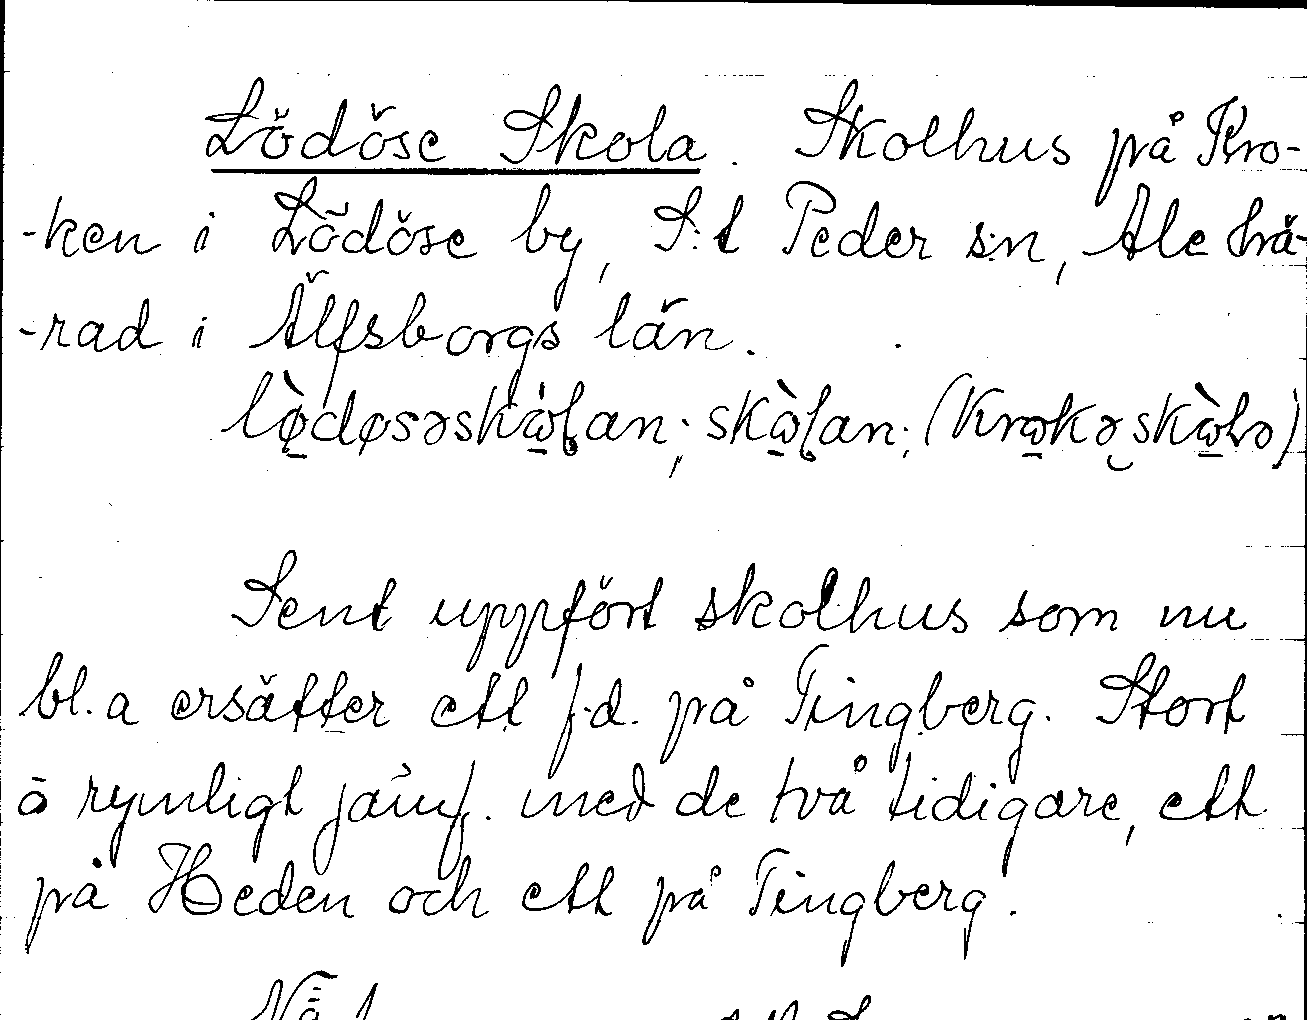 Lödöse Skola. Skolhus på Kro-
-ken i Lödöse by, S:t Peder s:n, Ale hä-
-rad i Älfsborgs län.
sent uppfört skolhus som nu
bl.a ersätter ett f.d. på Tingberg. Stort
o rymligt jämf. med de två tidigare, ett
på Heden och ett på Tingberg.